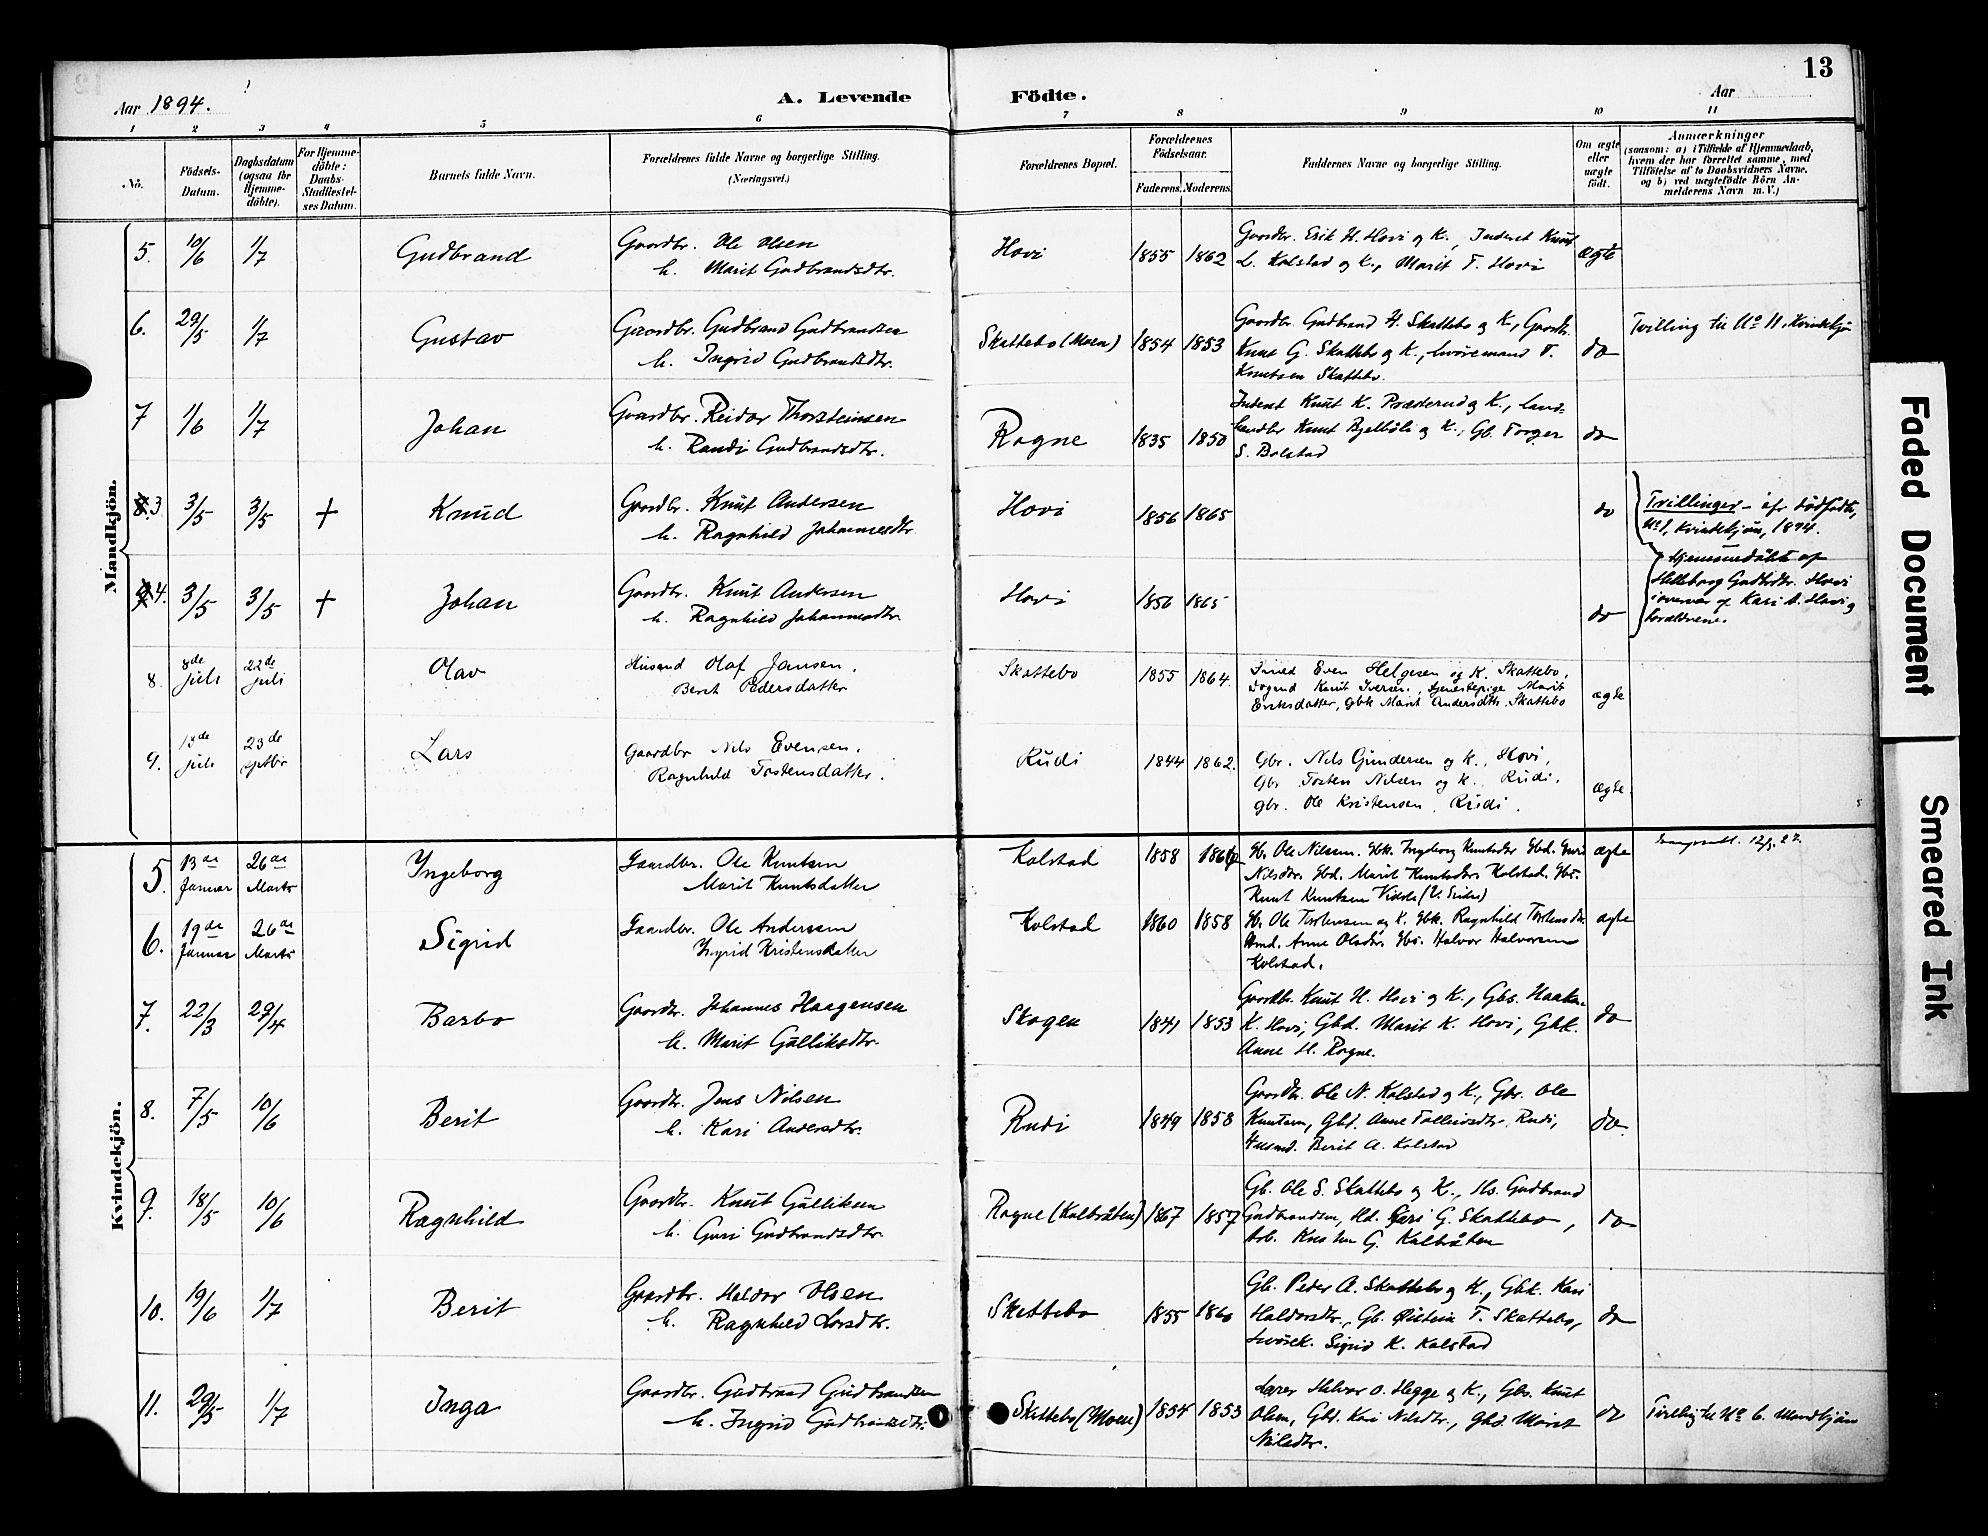 13
Aar 1894.
A. Levende Födte.
Aar
1 2 3 4 5 6 7 8 9 10 11
No.
Födsels-Datum.
Daabsdatum (ogsaa for Hjemme-döbte).
For Hjemme-döbte: Daabs-Stadfæstel-ses Datum.
Barnets fulde Navn.
Forældrenes fulde Navne og borgerlige Stilling.
(Næringsvei.)
Forældrenes Bopæl.
Forældrenes Födselsaar.
Faderens. Moderens.
Faddernes Navne og borgerlige Stilling.
Om ægte eller uægte födt.
Anmærkninger
(saasom: a) i Tilfælde af Hjemmedaab,
hvem der har forrettet samme, med
Tilföielse af to Daabsvidners Navne,
og b) ved uægtefödte Börn An-
melderens Navn m. V.)
Mandkjön.
5. 10/6 1/7 Gudbrand Gaardbr. Ole Olsen
h. Marit Gudbrandsdtr.
Hovi 1855 1862
Gaardbr. Erik H. Hovi og K., Inderst Knut
L. Kolstad og K., Marit T. Hovi
ægte
6. 29/5 1/7 Gustav Gaardbr. Gudbrand Gudbrandsen
h. Ingrid Gudbrandsdtr.
Skattebo (Moen) 1854 1853
Gaardbr. Gudbrand H. Skattebo og K., Gaardbr.
Knut G. Skattebo og K., T.
Knutsen Skattebo.
do
Tvilling til No 11, Kvindekjön
7 1/6 1/7 Johan Gaardbr. Reidar Thorsteinsen
h. Randi Gudbrandsdtr.
Rogne 1835 1850
Inderst Knut K. Præsterud og K., Land-
handler Knut Bjelbøle og K., Gb. Torger
S. Bolstad
do
3 3/5 3/5 + Knud Gaardbr. Knut Andersen
h. Ragnhild Johannesdtr.
Hovi 1856 1865
do
Tvillinger - cfr dödfödte,
No 1, Kvindekjön, 1894.
4. 3/5 3/5 + Johan Gaardbr. Knut Andersen
h. Ragnhild Johannesdtr.
Hovi 1856 1865
do
Hjemmedöbte af
Gudbrdtr. Hovi
i overvær af Kari A. Hovi og
forældrene.
8. 8de juli 22de juli Olav Husmd Olaf Jansen.
Berit Pedersdatter
Skattebo 1855 1864.
Even Helgesen og K. Skattebo,
Knut Iversen, tjenestepige Marit
Eriksdatter, Gbk Marit Andersdtr. Skattebo
ægte
9. 13de juli 23de Septbr Lars Gaardbr Nils Evensen.
Ragnhild Tostensdatter.
Rudi 1844 1862.
Gbr. Nils Gundersen og K., Hovi,
Gbr Tosten Nilsen og K. Rudi.
Gbr. Ole Kristensen Rudi.
ægte.
Kvindekjön.
5. 13de Januar 26de Marts Ingeborg Gaardbr. Ole Knutsen
Marit Knutsdatter
Kolstad 1858
Gb. Ole Nilssen. Gbk. Ingeborg Knutsdtr Gbd. Guri
Nilsdtr. Gbd. Marit Knutsdtr Kolstad. Gbs.
Knut Knutsen
ægte
6. 19de Januar 26de Marts Sigrid Gaardbr. Ole Andersen
Ingrid Kristensdatter
Kolstad 1860 1858
Gb. Ole Torstensen og K. Gbk. Ragnhild Torstensdtr.
Anne Olsdtr. Gbs. Halvor Halvorsen
Kolstad.
ægte
7. 22/3 29/4 Barbo Gaardbr. Johannes Haagensen
h. Marit Gulliksdtr.
Skogen 1841 1853
Gaardbr. Knut H. Hovi og K., Gbs. Haaken
K. Hovi, Gbd. Marit K. Hovi, Gbk.
Anne H. Rogne.
do
8. 7/5 10/6 Berit Gaardbr. Jens Nilsen
h. Kari Andersdtr.
Rudi 1849 1858
Gaardbr. Ole N. Kolstad og K., Gbr. Ole
Knutsen, Gbd. Anne Tolleivsdtr. Rudi,
Husmd. Berit A. Kolstad
do.
9. 18/5 10/6 Ragnhild Gaardbr. Knut Gulliksen
h. Guri Gudbrandsdtr.
Rogne (Kalbråten) 1867 1857
Gb. Ole S. Skattebo og K., Hs. Gudbrand
Gudbrandsen, Hd. Kari G. Skattebo,
Arb. G. Kalbråten
do
10. 19/6 1/7 Berit Gaardbr. Haldor Olsen
h. Ragnhild Larsdtr.
Skattebo 1855 1860
Gb. Peder A. Skattebo og K., Gbk. Kari
Haldorsdtr., Gb. T. Skattebo,
Sigrid K. Kolstad
do
11. 29/5 1/7 Inga Gaardbr. Gudbrand Gudbrandsen
h. Ingrid Gudbrandsdtr.
Skattebo (Moen) 1854 1853
Lærer Halvor O. Hegge og K., Gbs. Knut
Olsen, Gbd. Kari Nilsdtr., Gbd. Marit
Nilsdtr.
do
Tvilling til No 6. Mandkjön
Faded Document
Smeared Ink